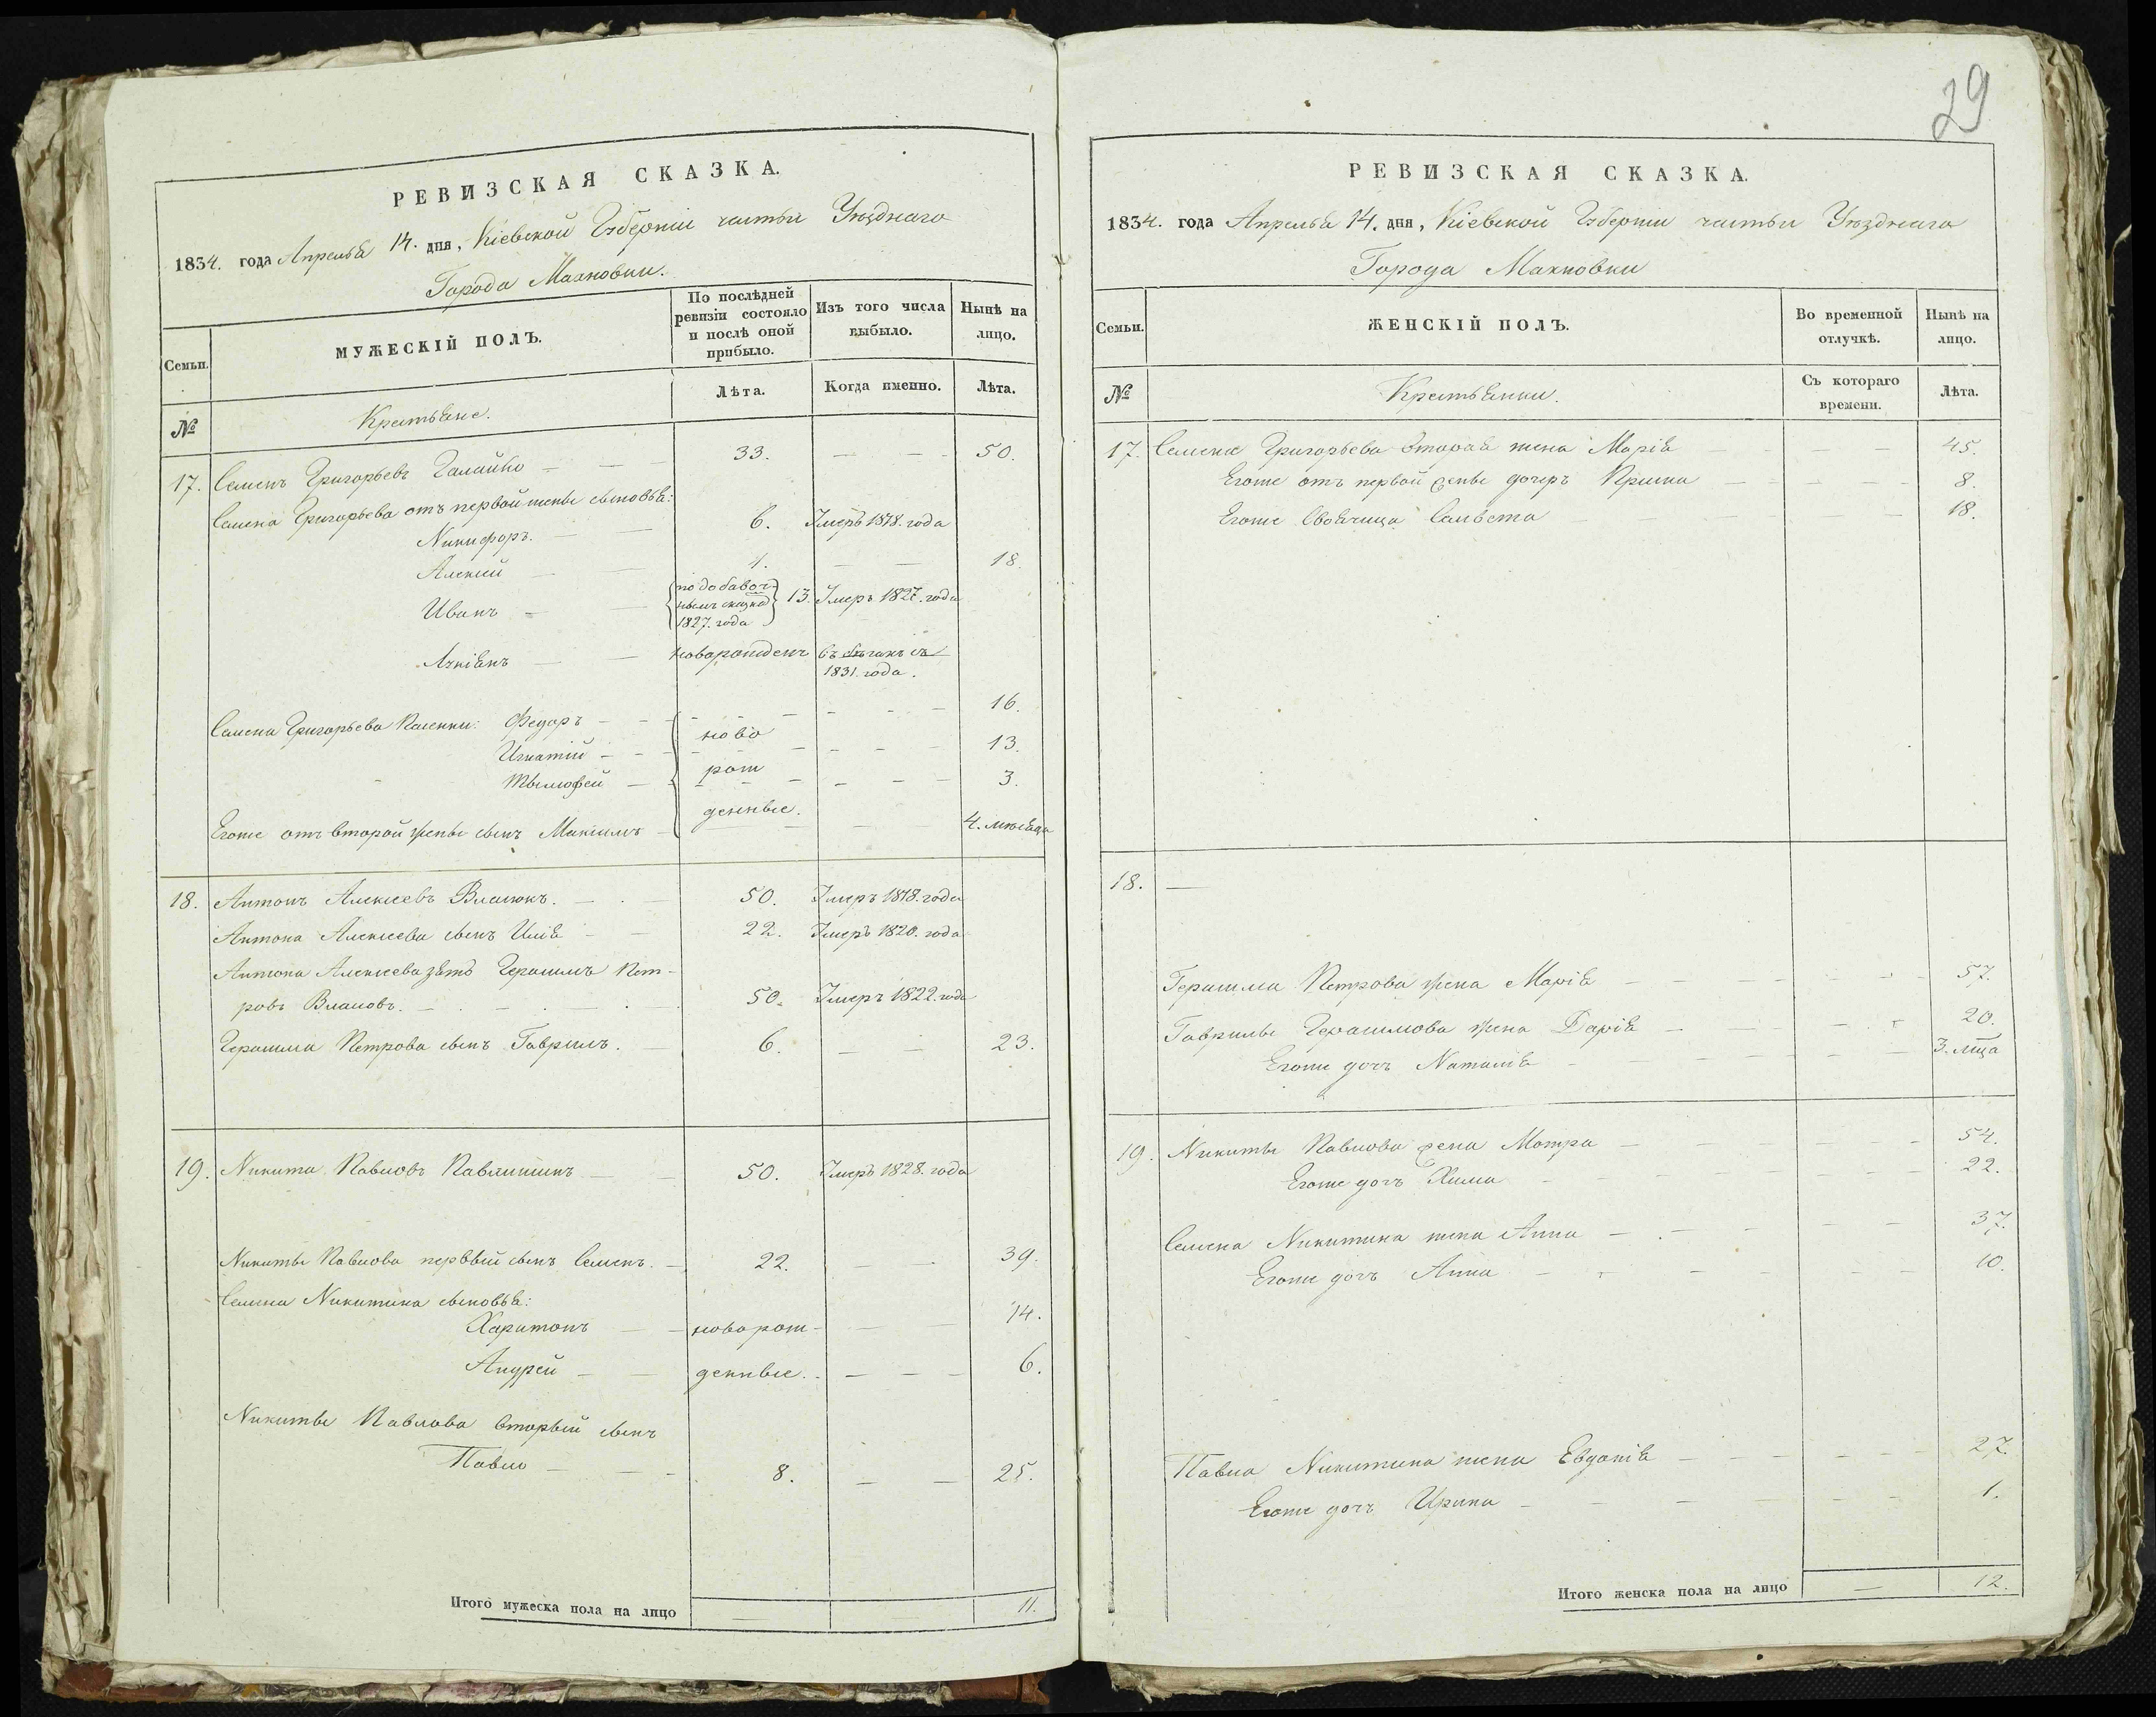 29
РЕВИЗСКАЯ СКАЗКА.
1834. года Апреля 14. дня, Кіевской Губерніи части Уѣзднаго
Города Махновки.
Семьи.
МУЖЕСКІЙ ПОЛЪ.
По послѣдней ревизіи состояло и послѣ оной прибыло.
Изъ того числа выбыло.
Нынѣ на лицо.
№
Крестьяне.
Лѣта.
Когда именно.
Лѣта.
17. Семенъ Григорьевъ Галайко — — — 33. — — — 50.
Семена Григорьева отъ первой жены сыновья:
Никифоръ. — — 6. Умеръ 1818. года
Алексій — — 1. — — 18.
Иванъ — — по добавоч-
нымъ сказка 13. Умеръ 1827. года
1827. года
Лукіянъ — — новорожденъ въ бѣгахъ съ
1831. года.
Семена Григорьева Пасенки: Федоръ — — — — — 16.
ново
Игнатій — — — — — 13.
рож
Тымофей — — — — — 3.
денные.
Егоже отъ второй жены сынъ Максимъ — — — 4. мѣсяца
18. Антонъ Алексеевъ Власюкъ. — — 50. Умеръ 1818. года
Антона Алексеева сынъ Илія — — 22. Умеръ 1820. года
Антона Алексеева зять Герасимъ Пет-
ровъ Власовъ. — — — 50. Умеръ 1822. года
Герасима Петрова сынъ Гаврилъ. — 6. — — 23.
19. Никита Павловъ Павлишинъ — — 50. Умеръ 1828. года
Никиты Павлова первый сынъ Семенъ. — 22. — — 39.
Семена Никитина сыновья:
Харитонъ — — новорож- — — 14.
Андрей — — денные. — — — 6.
Никиты Павлова вторый сынъ
Павло — — — 8. — — 25.
Итого мужеска пола на лицо — 11.
РЕВИЗСКАЯ СКАЗКА.
1834. года Апреля 14. дня, Кіевской Губерніи части Уѣзднаго
Города Махновки
Семьи.
ЖЕНСКІЙ ПОЛЪ.
Во временной отлучкѣ.
Нынѣ на лицо.
№
Крестьянки.
Съ котораго времени.
Лѣта.
17. Семена Григорьева вторая жена Марія — — — 45.
Егоже отъ первой жены дочерь Крина — — — 8.
Егоже Своячица Сальвета — — — 18.
18. —
Герасима Петрова жена Марія — — — 57.
Гаврилы Герасимова жена Дарія — — — 20.
Егоже дочь Наталія — — — 3. мца
19. Никиты Павлова жена Мотра — — — 54.
Егоже дочь Хима — — — 22.
Семена Никитина жена Анна — — — 37.
Егоже дочь Анна — — — 10.
Павла Никитина жена Евдокія — — — 27.
Егоже дочь Ирина — — — 1.
Итого женска пола на лицо — 12.